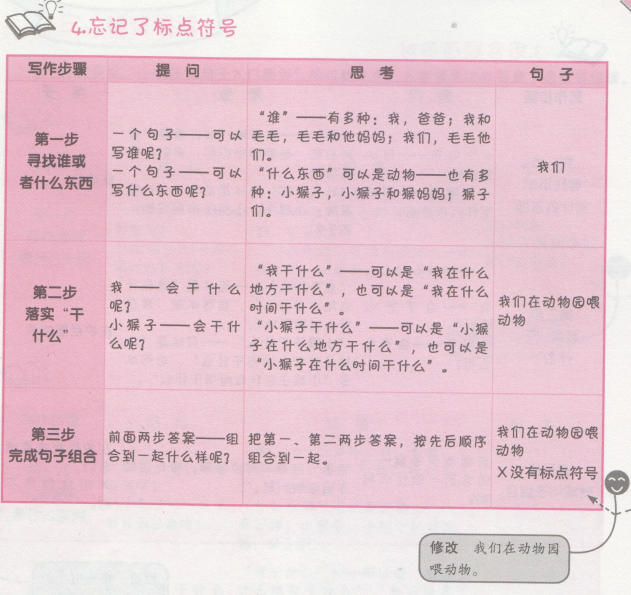 4.忘记了标点符号
写作步骤 提问 思考 句子
第一步
寻找谁或
者什么东西
一个句子——可以
写谁呢？
一个句子——可以
写什么东西呢？
“谁”——有多种：我，爸爸；我和
毛毛，毛毛和他妈妈；我们，毛毛他
们。
“什么东西”可以是动物——也有多
种：小猴子，小猴子和猴妈妈；猴子
们。
我们
第二步
落实“干
什么”
我——会干什么
呢？
小猴子——会干什
么呢？
“我干什么”——可以是“我在什么
地方干什么”，也可以是“我在什么
时间干什么”。
“小猴子干什么”——可以是“小猴
子在什么地方干什么”，也可以是
“小猴子在什么时间干什么”。
我们在动物园喂
动物
第三步
完成句子组合
前面两步答案——组
合到一起什么样呢？
把第一、第二两步答案，按先后顺序
组合到一起。
我们在动物园喂
动物
×没有标点符号
修改 我们在动物园
喂动物。